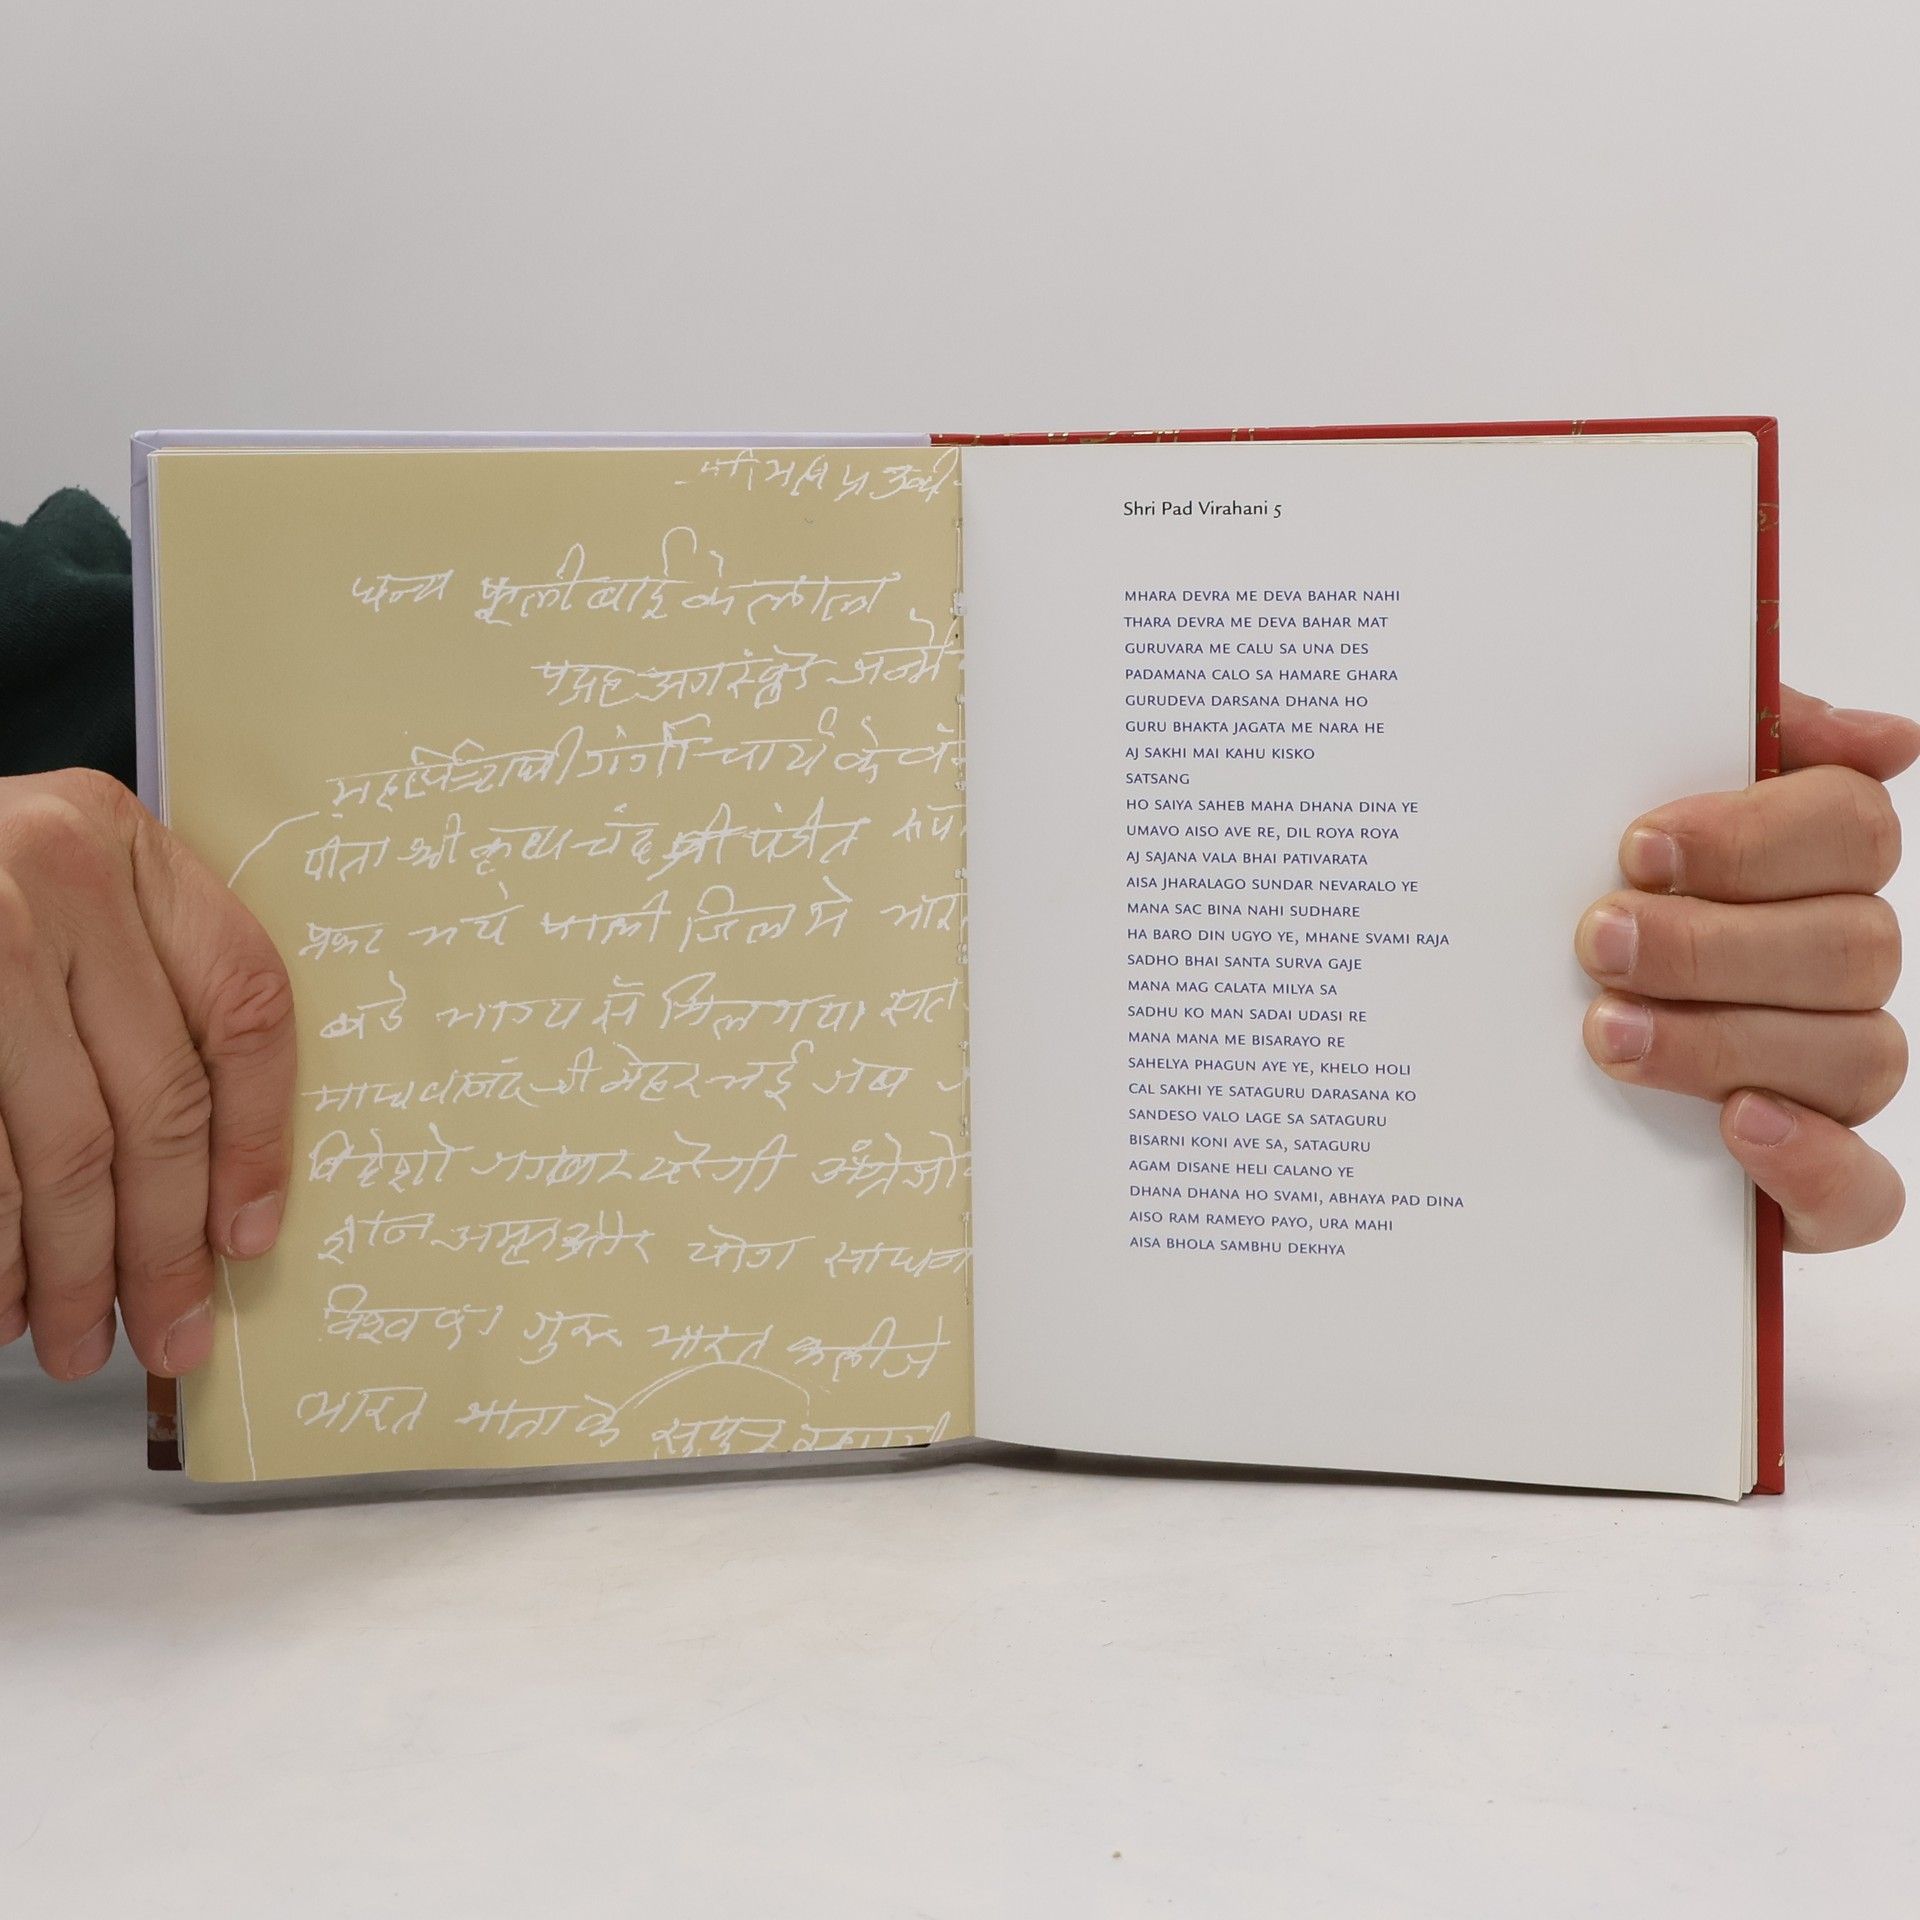 धन्य फूली बाई के लाल
पन्द्रह अगस्त को जन्मे
पीता श्री कृष्ण चंद्र श्री पंडीत
प्रकट भये पाली जिल मे
बडे भाग्य से मिल गया सत
मेहर भई जब
ज्ञान अमृत और योग साधना
विश्व का गुरू भारत
भारत माता के सुपुत्र
Shri Pad Virahani 5
MHARA DEVRA ME DEVA BAHAR NAHI
THARA DEVRA ME DEVA BAHAR MAT
GURUVARA ME CALU SA UNA DES
PADAMANA CALO SA HAMARE GHARA
GURUDEVA DARSANA DHANA HO
GURU BHAKTA JAGATA ME NARA HE
AJ SAKHI MAI KAHU KISKO
SATSANG
HO SAIYA SAHEB MAHA DHANA DINA YE
UMAVO AISO AVE RE, DIL ROYA ROYA
AJ SAJANA VALA BHAI PATIVARATA
AISA JHARALAGO SUNDAR NEVARALO YE
MANA SAC BINA NAHI SUDHARE
HA BARO DIN UGYO YE, MHANE SVAMI RAJA
SADHO BHAI SANTA SURVA GAJE
MANA MAG CALATA MILYA SA
SADHU KO MAN SADAI UDASI RE
MANA MANA ME BISARAYO RE
SAHELYA PHAGUN AYE YE, KHELO HOLI
CAL SAKHI YE SATAGURU DARASANA KO
SANDESO VALO LAGE SA SATAGURU
BISARNI KONI AVE SA, SATAGURU
AGAM DISANE HELI CALANO YE
DHANA DHANA HO SVAMI, ABHAYA PAD DINA
AISO RAM RAMEYO PAYO, URA MAHI
AISA BHOLA SAMBHU DEKHYA